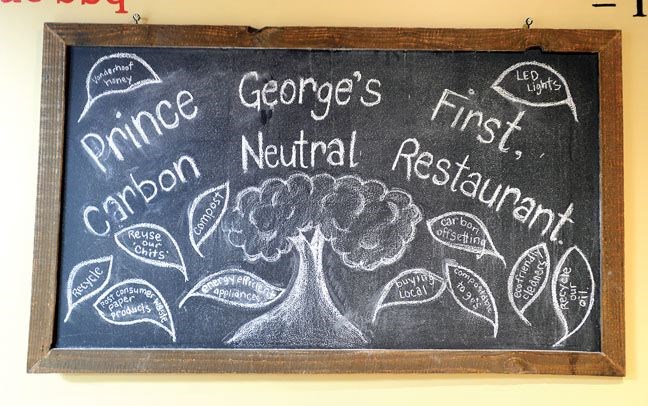 BBQ
Prince George's First,
Carbon Neutral Restaurant.
Vanderhoof
honey
LED
Lights
compost
Reuse
our
'Chits'
Recycle
Post consumer waste
paper
products
energy efficient
appliances
carbon
offsetting
buying
Local
compostable
to go's
ecofriendly
cleaners
Recycle
our
oil